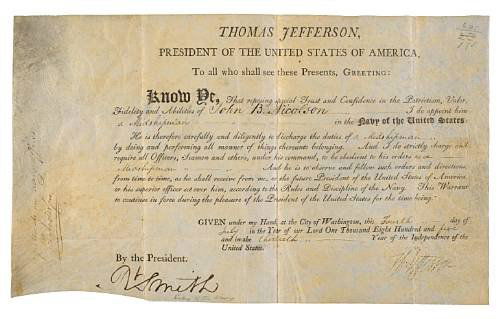 THOMAS JEFFERSON,
PRESIDENT OF THE UNITED STATES OF AMERICA,
To all who shall see these Presents, GREETING:
KNOW YE, That reposing special Trust and Confidence in the Patriotism, Valor,
Fidelity and Abilities of John B. Nicolson I do appoint him
a Midshipman in the Navy of the United States:
He is therefore carefully and diligently to discharge the duties of a Midshipman
by doing and performing all manner of things thereunto belonging. And I do strictly charge and
require all Officers, Seamen and others, under his command, to be obedient to his orders as a
Midshipman And he is to observe and follow such orders and directions,
from time to time, as he shall receive from me, or the future President of the United States of America,
or his superior officer set over him, according to the Rules and Discipline of the Navy. This Warrant
to continue in force during the pleasure of the President of the United States for the time being.
GIVEN under my Hand, at the City of Washington, this Fourth day of
July in the Year of our Lord One Thousand Eight Hundred and five
and in the Thirtieth Year of the Independence of the
United States.
By the President.
Rt Smith